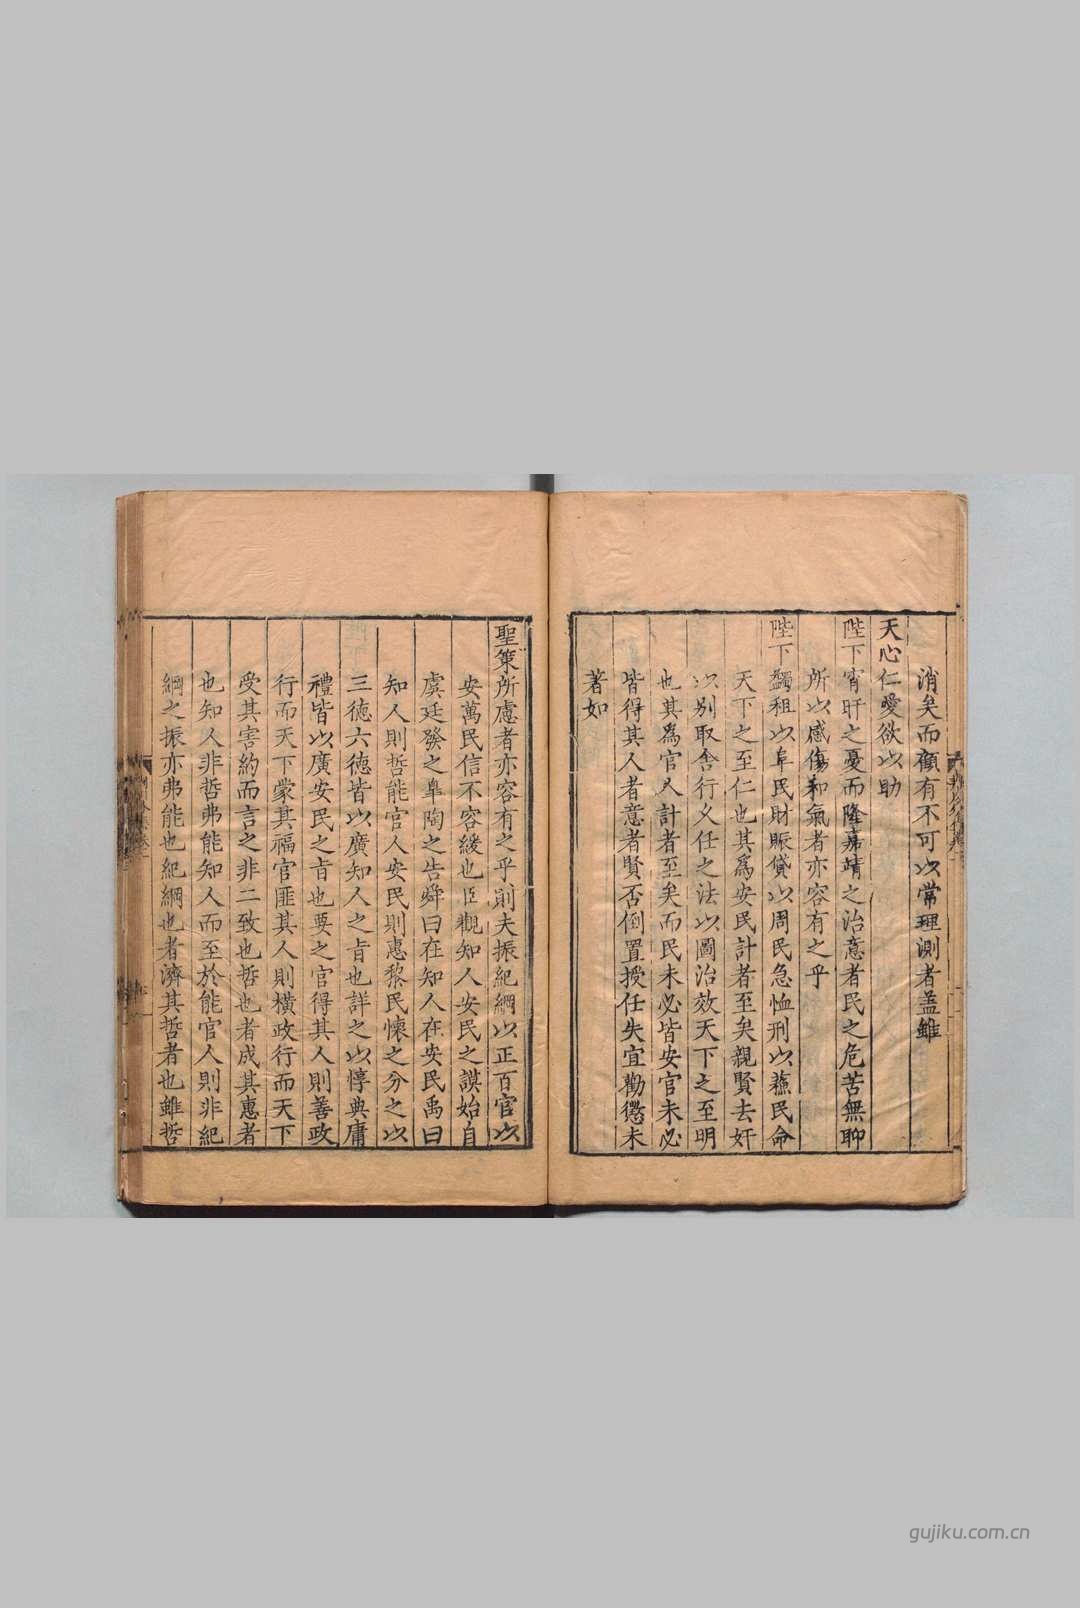 消矣而顧有不可以常理測者盖雖
天心仁愛欲以助
陛下宵旰之憂而隆嘉靖之治意者民之危苦無聊
所以感傷和氣者亦容有之乎
陛下蠲租以阜民財賑貸以周民急恤刑以蘓民命
天下之至仁也其為安民計者至矣親賢去奸
以别取舍行义任之法以圖治效天下之至明
也其爲官人計者至矣而民未必皆安官未必
皆得其人者意者賢否倒置授任失宜勸懲未
著如
聖策所慮者亦容有之乎則夫振紀綱以正百官以
安萬民信不容緩也臣觀知人安民之謨始自
虞廷發之臯陶之告舜曰在知人在安民禹曰
知人則哲能官人安民則惠黎民懷之分之以
三德六德皆以廣知人之旨也詳之以惇典庸
禮皆以廣安民之旨也要之官得其人則善政
行而天下蒙其福官匪其人則横政行而天下
受其害約而言之非二致也哲也者成其惠者
也知人非哲弗能知人而至於能官人則非紀
綱之振亦弗能也紀綱也者濟其哲者也雖哲
gujiku.com.cn